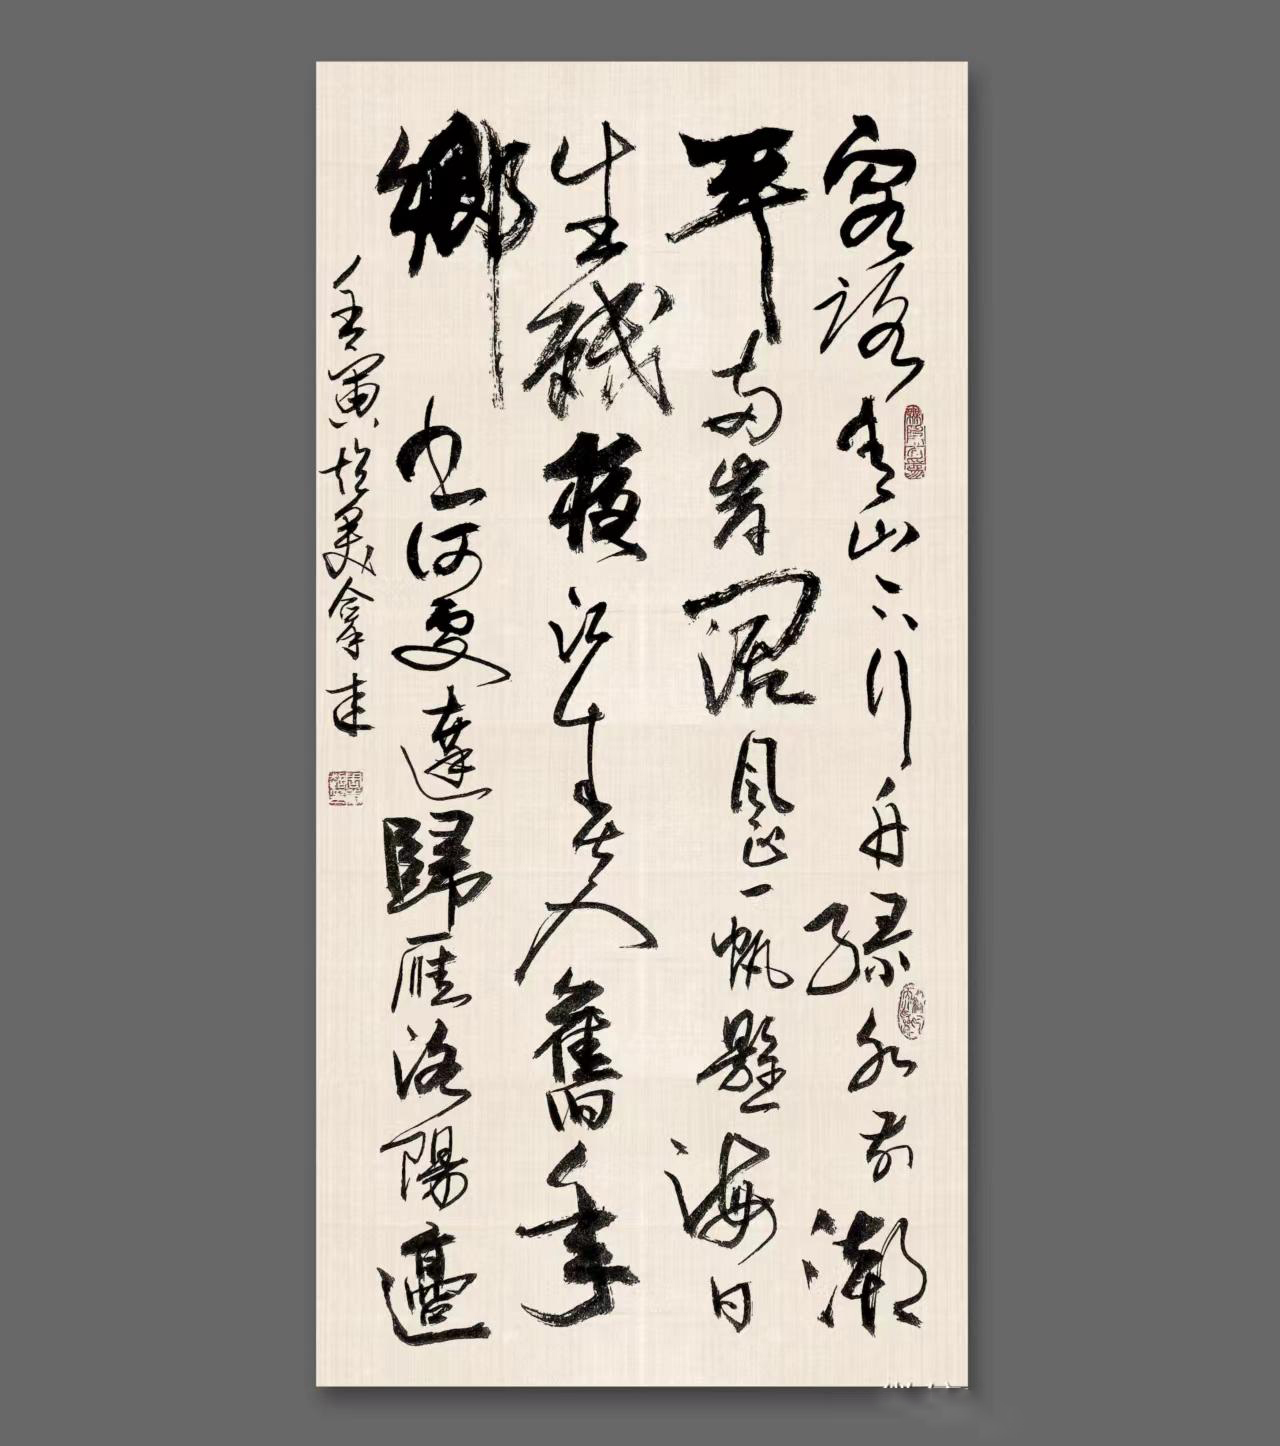 客路青山下行舟綠水前潮
平兩岸闊風正一帆懸海日
生殘夜江春入舊年
鄉書何處達歸雁洛陽邊
壬寅